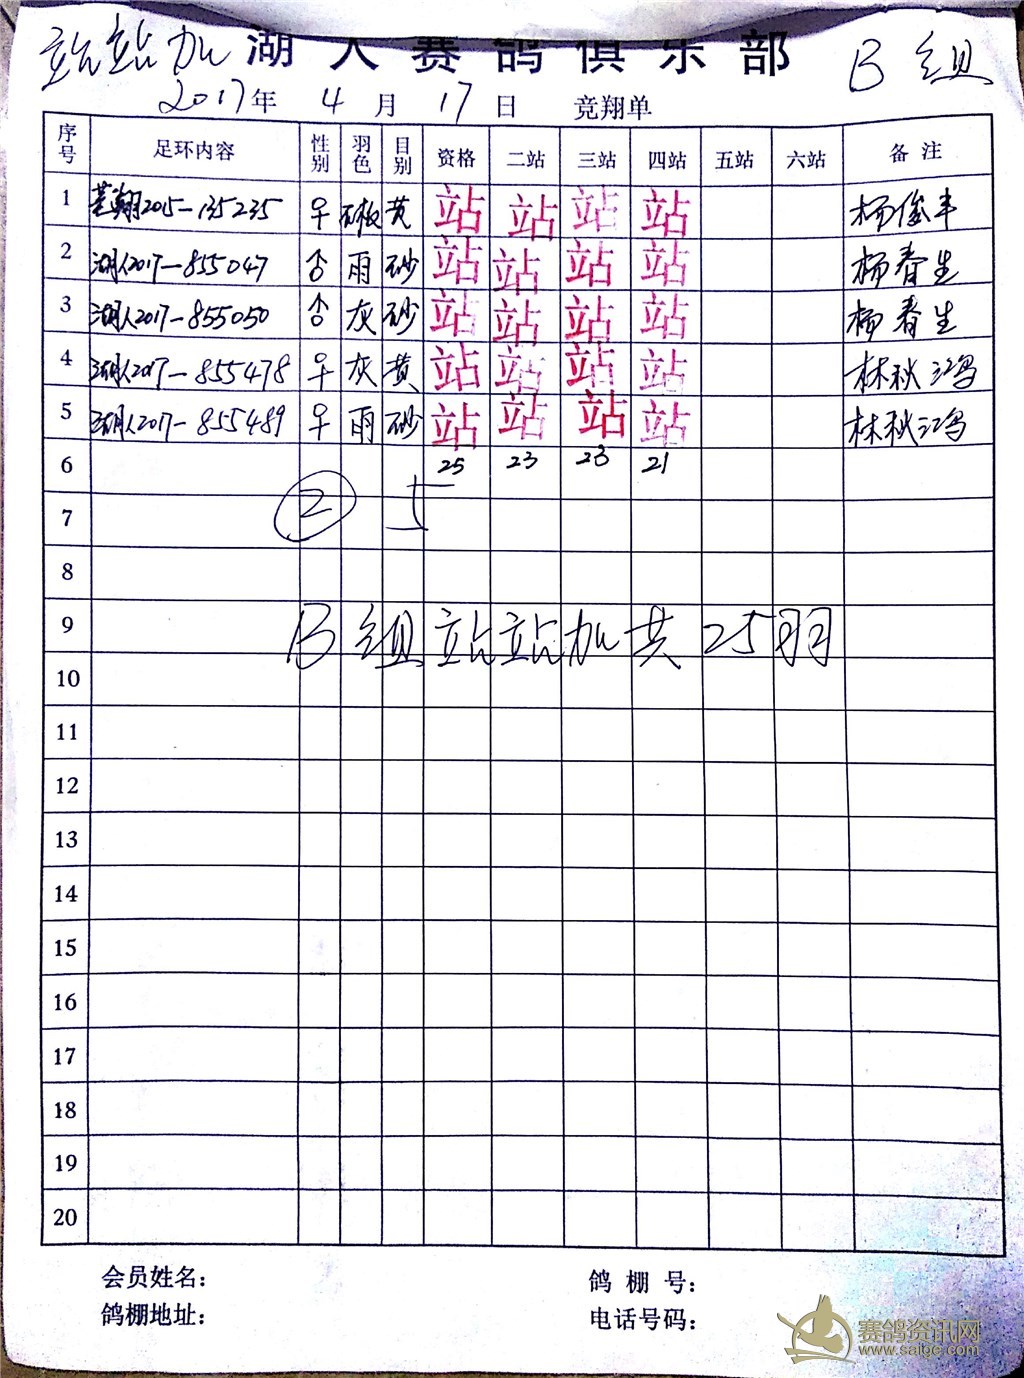 站站加 湖人赛鸽俱乐部 B组
2017年 4月 17日 竞翔单
序号 足环内容 性别 羽色 目别 资格 二站 三站 四站 五站 六站 备注
1 2015-135235 ♀ 黄 站 站 站 站 杨俊丰
2 湖人2017-855047 ♂ 雨 砂 站 站 站 站 杨春生
3 湖人2017-855050 ♂ 灰 砂 站 站 站 站 杨春生
4 湖人2017-855478 ♀ 灰 黄 站 站 站 站 林秋鸿
5 湖人2017-855489 ♀ 雨 砂 站 站 站 站 林秋鸿
6 25 23 23 21
7 ② 5
8
9 B组站站加共25羽
10
11
12
13
14
15
16
17
18
19
20
会员姓名： 鸽棚号：
鸽棚地址： 电话号码：
赛鸽资讯网
www.saigc.com